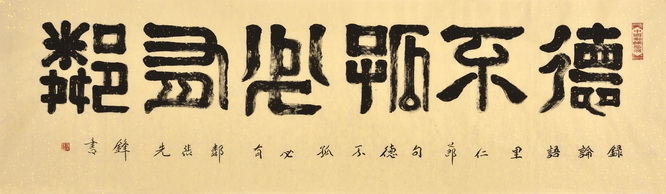 德不孤必有鄰
錄論語里仁節句德不孤必有鄰 先鋒書